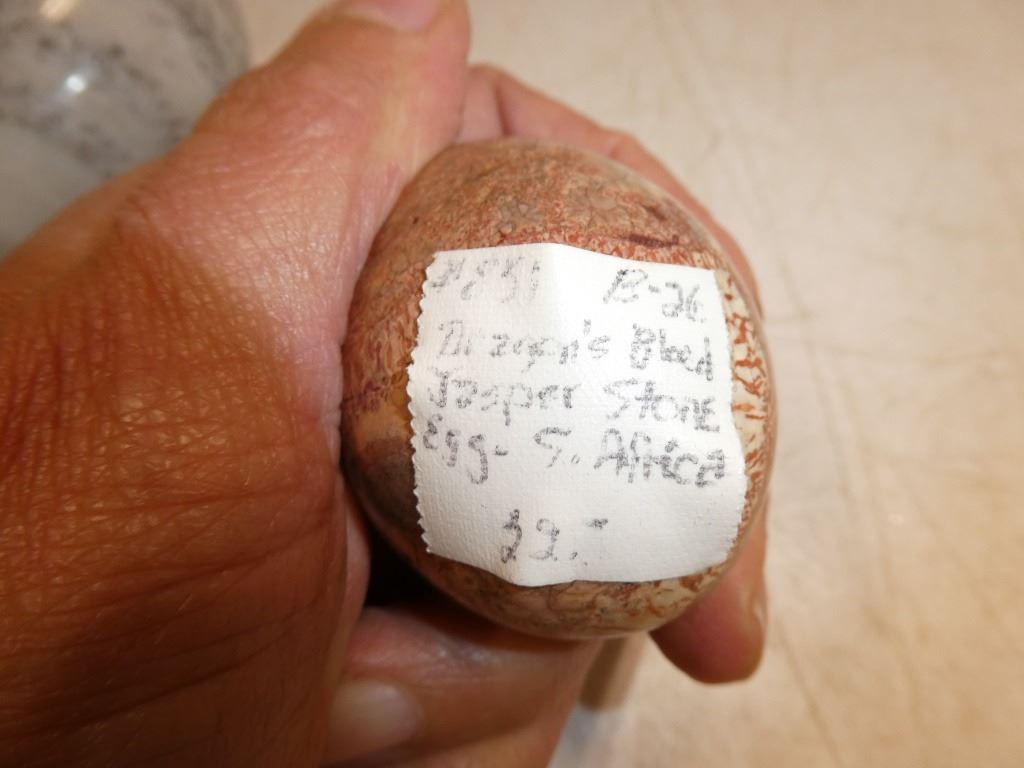 B-26
Dragon's Blood
Jasper Stone
Egg- S. Africa
22.-